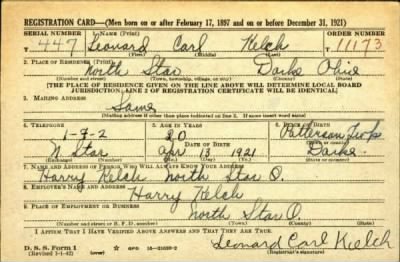 REGISTRATION CARD—(Men born on or after February 17, 1897 and on or before December 31, 1921)
SERIAL NUMBER 1. NAME (Print) ORDER NUMBER
T 447 Leonard Carl Kelch 11173
(First) (Middle) (Last)
2. PLACE OF RESIDENCE (Print)
North Star Darke Ohio
(Number and street) (Town, township, village, or city) (County) (State)
[THE PLACE OF RESIDENCE GIVEN ON THE LINE ABOVE WILL DETERMINE LOCAL BOARD
JURISDICTION; LINE 2 OF REGISTRATION CERTIFICATE WILL BE IDENTICAL]
3. MAILING ADDRESS
Same
[Mailing address if other than place indicated on line 2. If same insert word same]
4. TELEPHONE 5. AGE IN YEARS 6. PLACE OF BIRTH
1-9-2 20 Patterson
DATE OF BIRTH (Town or county)
N. Star Apr 13 1921 Darke
(Exchange) (Number) (Mo.) (Day) (Yr.) (State or country)
7. NAME AND ADDRESS OF PERSON WHO WILL ALWAYS KNOW YOUR ADDRESS
Harry Kelch North Star O.
8. EMPLOYER'S NAME AND ADDRESS
Harry Kelch
9. PLACE OF EMPLOYMENT OR BUSINESS
North Star O.
(Number and street or R. F. D. number) (Town) (County) (State)
I AFFIRM THAT I HAVE VERIFIED ABOVE ANSWERS AND THAT THEY ARE TRUE.
D. S. S. Form 1
(Revised 1-1-42) (over) GPO Leonard Carl Kelch
(Registrant's signature)